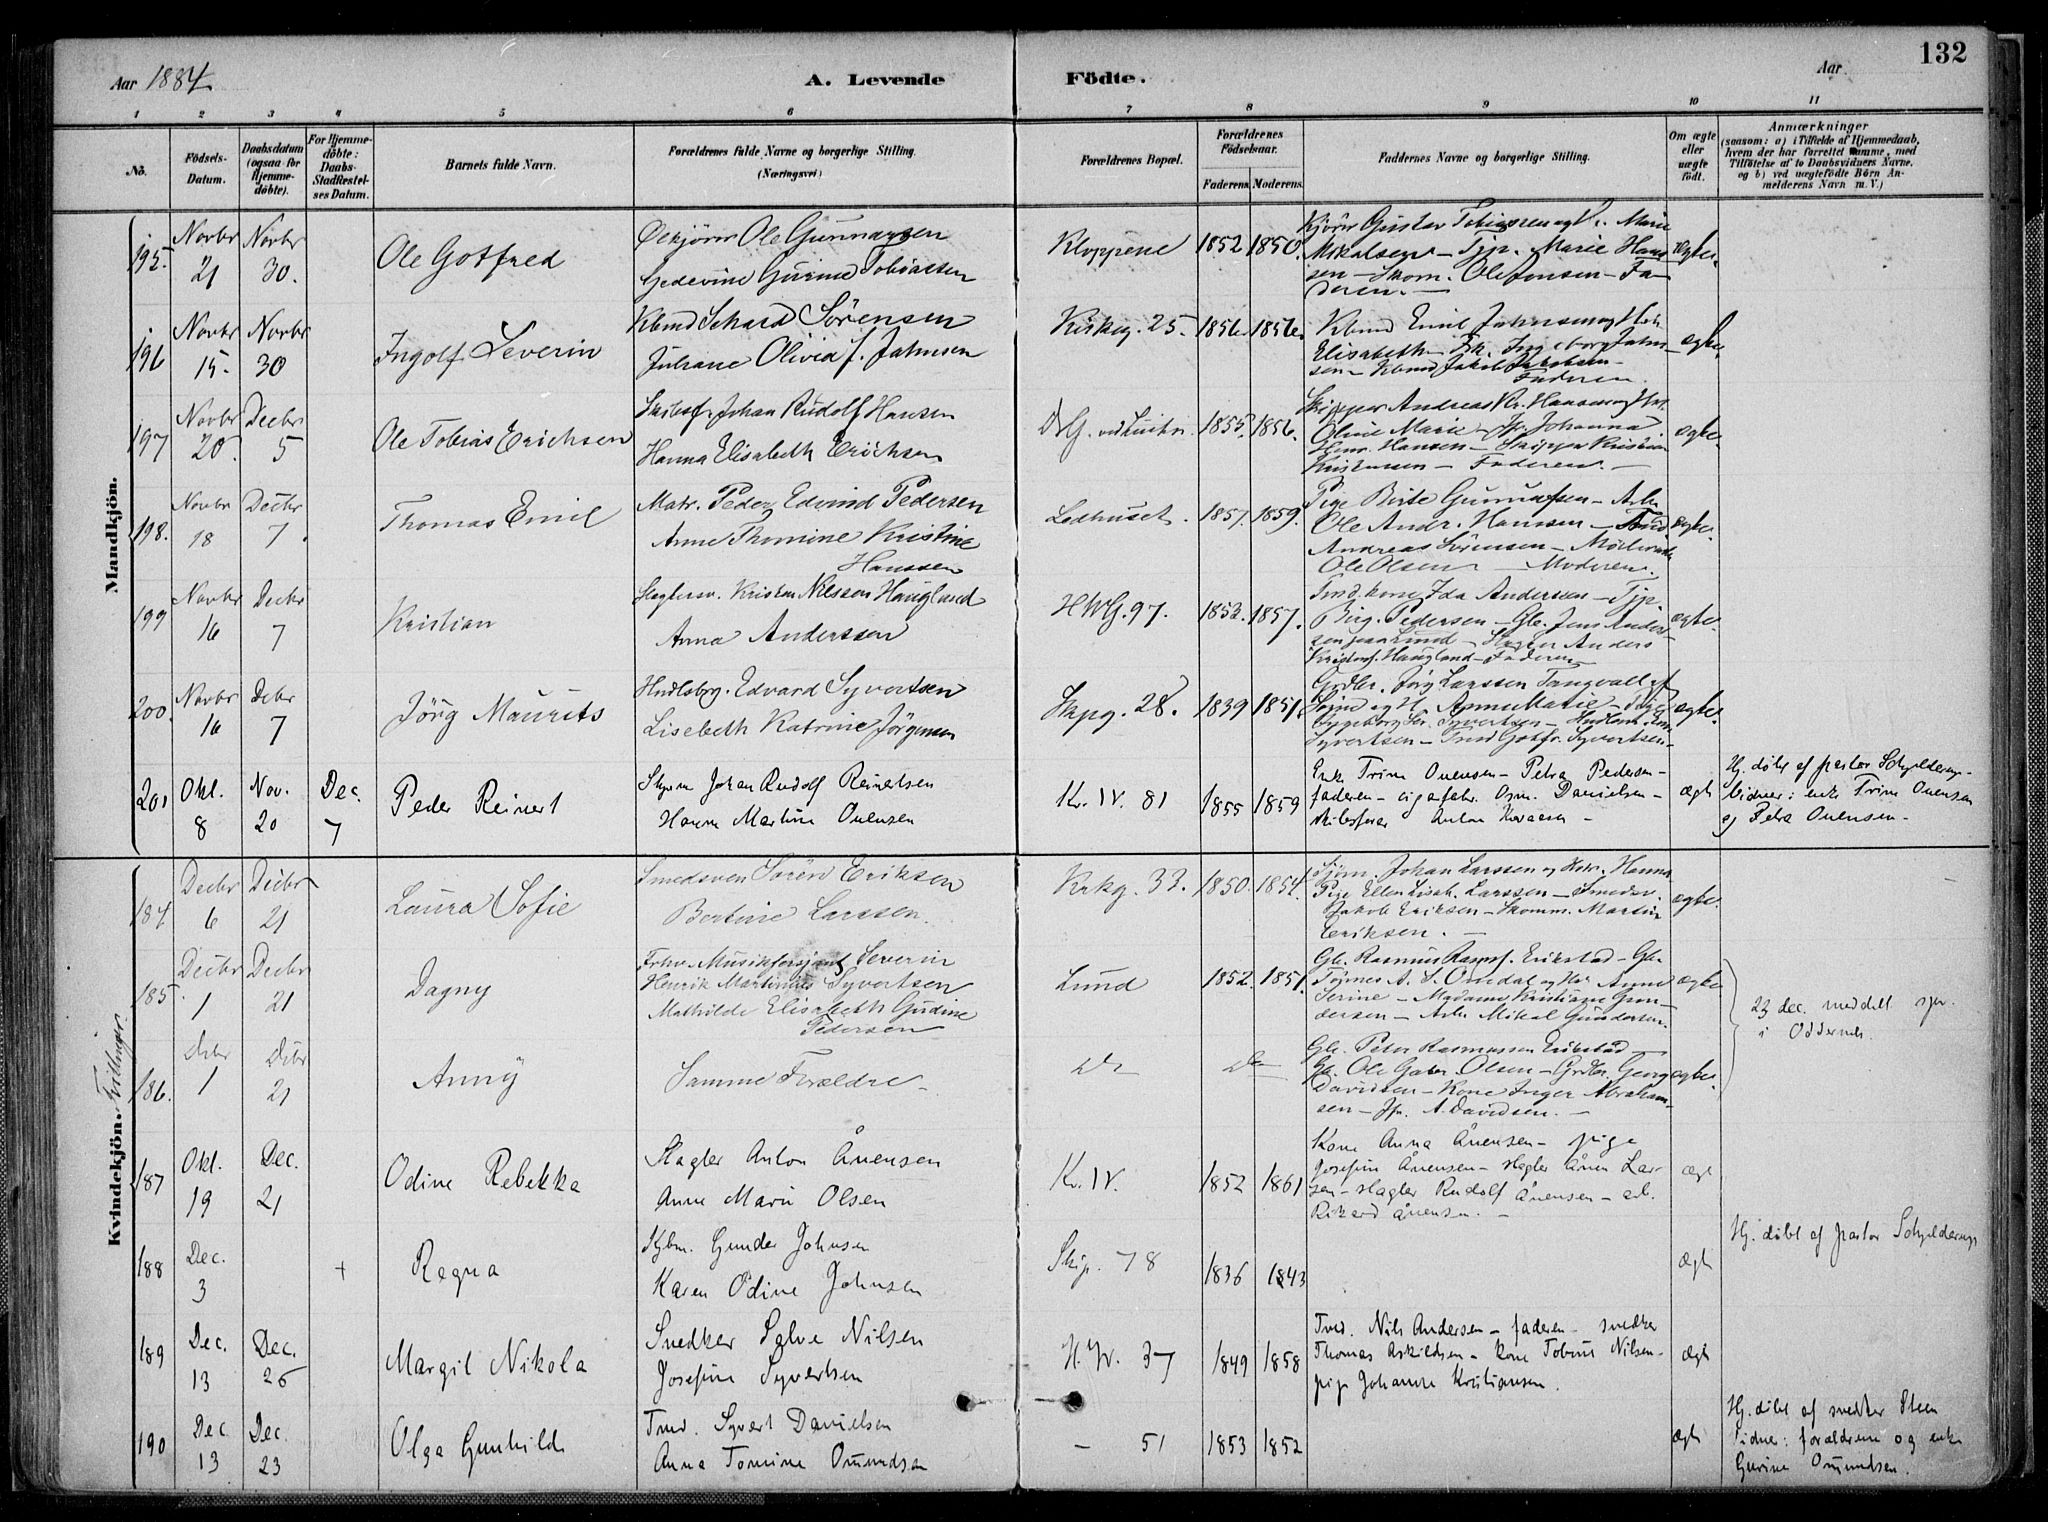 132
Aar 1884
A. Levende
Födte.
Aar
1 2 3 4 5 6 7 8 9 10 11
No.
Födsels-Datum.
Daabsdatum (ogsaa for Hjemmedöbte).
For Hjemmedöbte: Daabs-Stadfæstelses Datum.
Barnets fulde Navn.
Forældrenes fulde Navne og borgerlige Stilling. (Næringsvei)
Forældrenes Bopæl.
Forældrenes Födselsaar.
Faderens. Moderens.
Faddernes Navne og borgerlige Stilling.
Om ægte eller uægte födt.
Anmærkninger (saasom: a) i Tilfælde af Hjemmedaab, hvem der har forrettet samme, med Tilföielse af to Daabsvidners Navne, og b) ved uægtefödte Börn Anmelderens Navn m. V.)
Mandkjön.
195. Novbr 21 Novbr 30. Ole Gotfred
Ole Gunnarsen
Gedevine Gurine Tobiassen
Kloppene 1852 1850.
Gustav Tobiassen og H. Marie
Mikalsen – Tjp. Marie Hans
sen – Skom. Ole Jonsen – Fa
deren. –
ægte.
196 Novbr 15. Novbr 30 Ingolf Severin
Kbmd Schard Sörensen
Juliane Olivia f. Jahnsen
Kirkeg. 25. 1856. 1856.
Kbmd Emil Jahnsen og Hst.
Elisabeth – Fk. Ingeborg Jahn
sen – Kbmd Jakob Jakobsen –
Faderen.
ægte.
197 Novbr 20. Decbr 5 Ole Tobias Erichsen
Skibsf. Johan Rudolf Hansen
Hanna Elisabeth Erichsen
1853. 1856.
Skipper Andreas Kr. Hansen og Hst.
Oline Marie – Jfr. Johanna
Henr. Hansen – Skipper Kristian
Kristensen – Faderen. –
ægte.
198. Novbr 18 Decbr 7. Thomas Emil
Matr. Peder Edvind Pedersen
Anne Thomine Kristine
Hanssen
Ledhuset. 1857. 1859.
Pige Birte Gunuldsen – Arb.
Ole Andr. Hanssen – Tmd.
Andreas Sörensen –
Ole Olsen – Moderen.
ægte.
199 Novbr 16 Decbr 7 Kristian
Slagtersv. Kristen Nilsson Haugland
Anna Anderssen
HWG. 97. 1853. 1857.
Tmd. kone Ida Andersen – Tjp.
Birg. Pedersen – Gbr. Jens Ander
sen paa Lund – Slagter Anders
Kristens. Haugland – Faderen
ægte.
200. Novbr 16 Debr 7 Jörg Maurits
Hndlsbg. Edvard Syvertsen
Lisebeth Katrine Jörgensen
Skpg. 28. 1839 1851.
Grdbr. Jörg Larssen Tangvall af
Sögne og H. Anne Marie – Pige
Ingeborg Ser. Syvertsen –
Syvertsen – Tmd Gotfr. Syvertsen –
ægte.
201 Okt. 8 Nov. 20 Dec. 7 Peder Reinert
Styrm Johan Rudolf Reinertsen
Hanna Martine Ouensen
Kr. IV. 81 1855 1859
Enke Trine Ouensen – Petra Pedersen –
faderen – cigarfabr. Osm. Danielsen –
skibsförer Anton
ægt
Hj. döbt af pastor Schjelderup.
Vidner: enke Trine Ouensen
og Petra Ouensen –
Kvindekjön.
Tvillinger.
184. Decbr 6 Decbr 21 Laura Sofie
Smedsven Sören Eriksen
Bertine Larssen.
Krkg. 33. 1850. 1854.
Sjöm. Johan Larssen og Hstr. Hanna
Pige Ellen Lisab. Larssen – Smedsv.
Jakob Eriksen – Skomm. Martin
Eriksen. –
ægte.
185. Decbr 1 Decbr 21 Dagny
Frhv. Musiksersjant Severin
Henrik Martinius Syvertsen
Mathilde Elisabeth Gudine
Pedersen
Lund 1852. 1851.
Gbr. Rasmus Rasms. Erikstad – Gbr.
Tönnes A. S. Omdal og Hstr Anne
Serine – Madame Kristiane Gun
dersen – Arb. Mikal Gundersen.
ægte
23 dec. meddelt spr.
i Oddernes.
186. Debr 1 Debr 21 Anny
Samme Forældre –
Do Do
Gbr. Peter Rasmussen Erikstad –
Gbr. Ole Gabr. Olsen – Grdbr. Georg
Davidsen – Kone Inger Abraham
sen – Jfr. A. Davidsen. –
ægte.
187 Okt. 19 Dec. 21 Odine Rebekka
Slagter Anton Ånensen
Anne Marie Olsen
Kr. IV. 1852 1861
Kone Anna Ånensen – pige
Josefine Ånensen – slagter Ånen Lar-
sen – slagter Rudolf Ånensen – arb.
Rikard Ånensen. –
ægt
188 Dec. 3 + Regna
Kjbm. Gunder Johnsen
Karen Odine Johnsen
Skip. 78 1836 1843
ægt
Hj. döbt af pastor Schjelderup
189 Dec. 13 Dec. 26 Margit Nikola
Snedker Salve Nilsen
Josefine Syvertsen
H. W. 37 1849 1858
Tmd. Nils Andersen – faderen – snedker
Thomas Askildsen – kone Tobine Nilsen –
pige Johanne Kristiansen.
ægt
190 Dec. 13 Dec. 23 Olga Gunhilde
Tmd. Syvert Danielsen
Anna Tomine Omundsen
– 51 1853 1852
ægt
Hj. döbt af snedker Steen
Vidner: forældrene og enke
Gurine Omundsen.